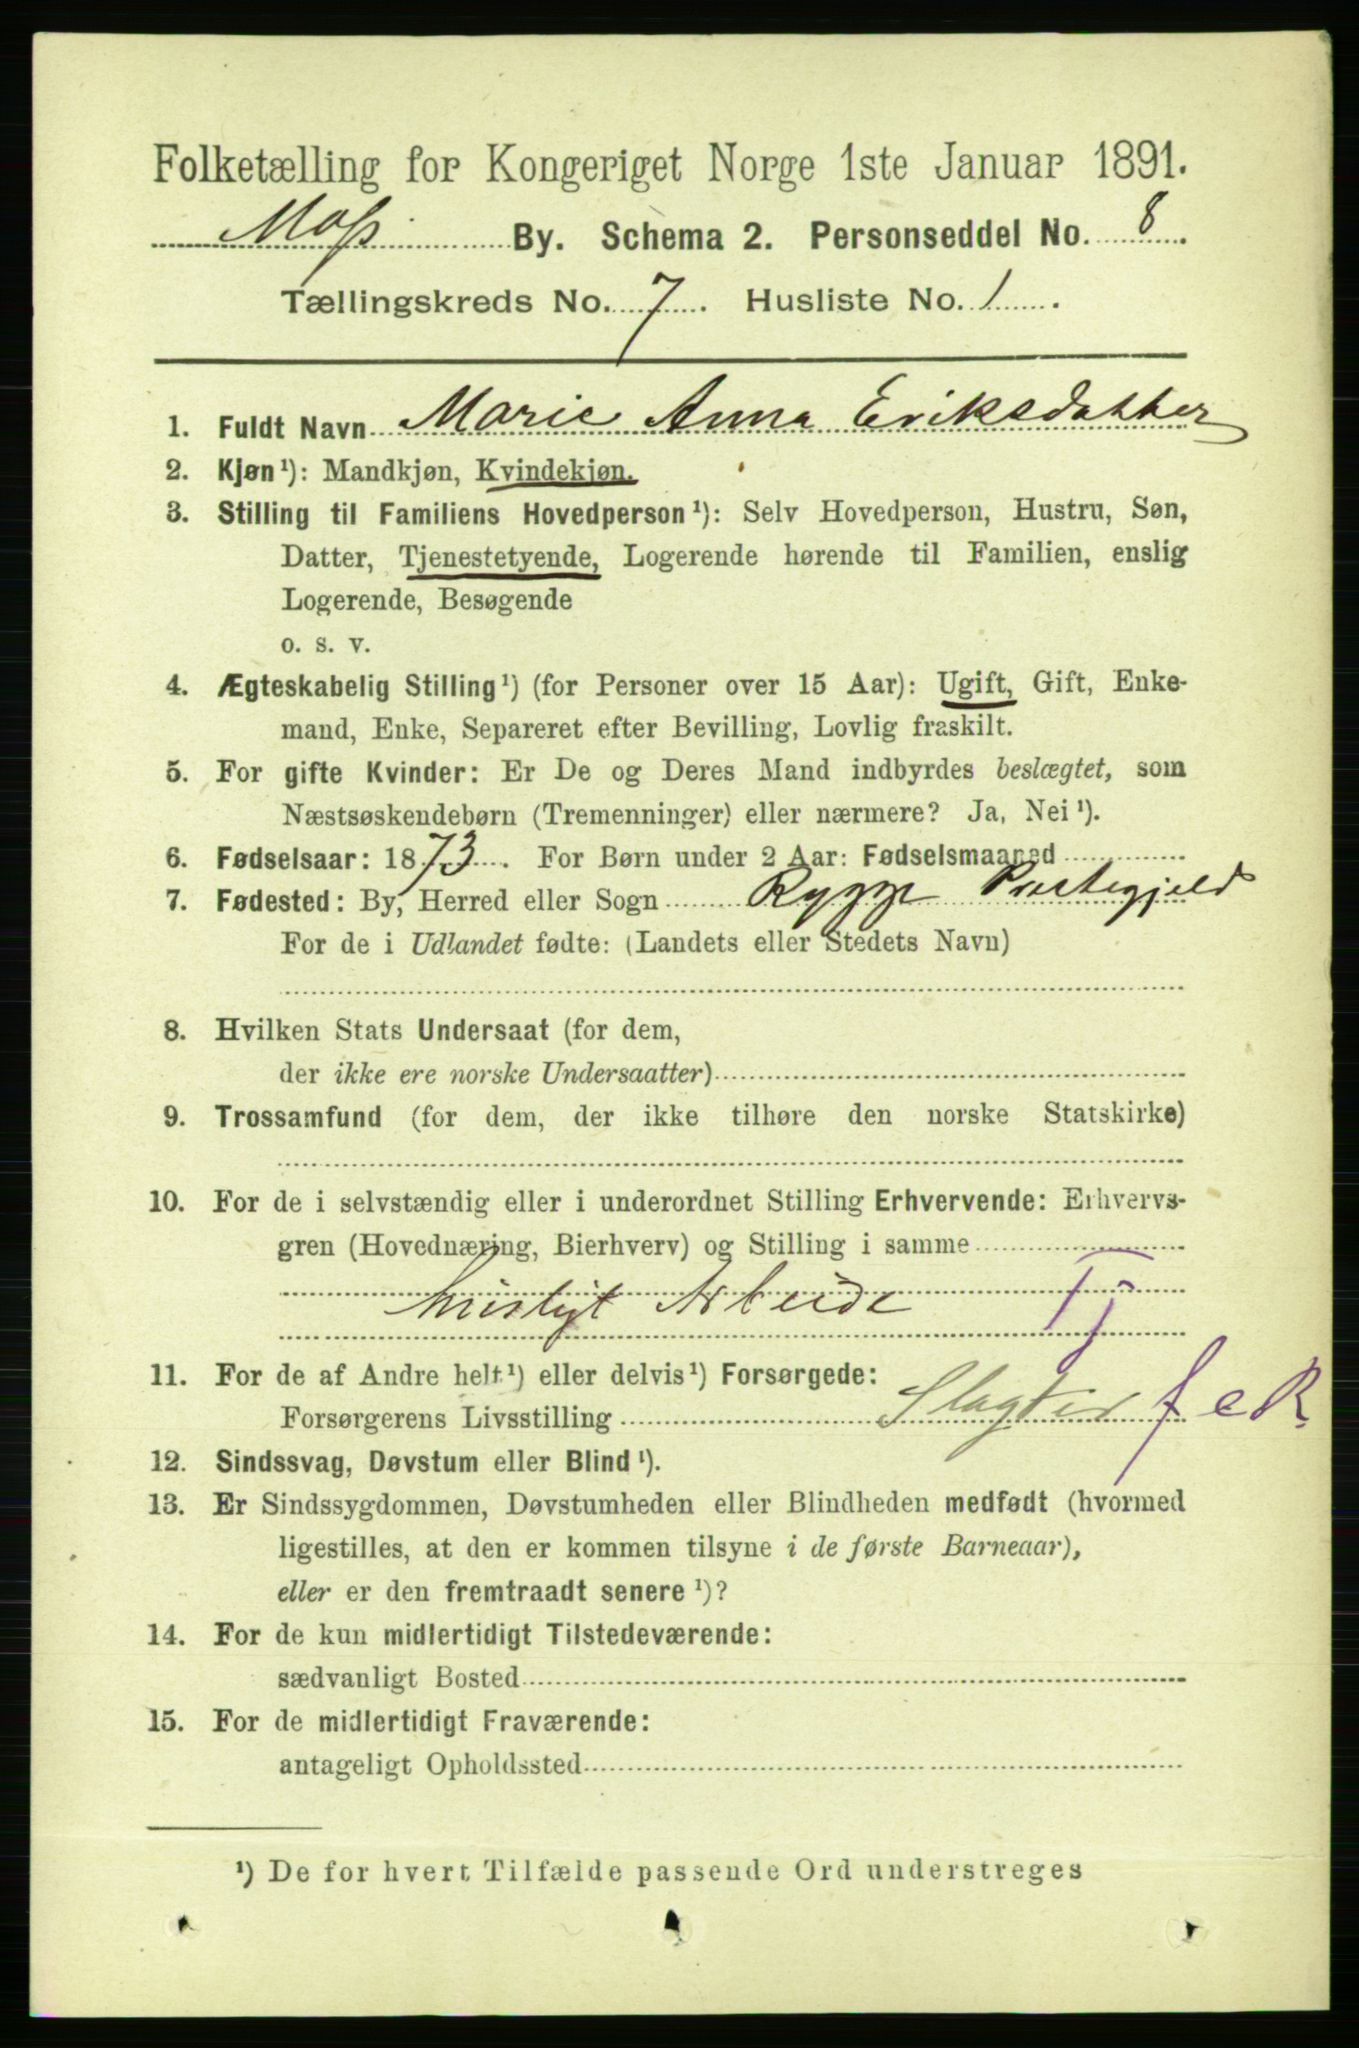 Folketælling for Kongeriget Norge 1ste Januar 1891.
Moss By. Schema 2. Personseddel No. 8.
Tællingskreds No. 7. Husliste No. 1.
1. Fuldt Navn Marie Anna Eriksdatter
2. Kjøn¹): Mandkjøn, Kvindekjøn.
3. Stilling til Familiens Hovedperson¹): Selv Hovedperson, Hustru, Søn,
Datter, Tjenestetyende, Logerende hørende til Familien, enslig
Logerende, Besøgende
o. s. v.
4. Ægteskabelig Stilling¹) (for Personer over 15 Aar): Ugift, Gift, Enke-
mand, Enke, Separeret efter Bevilling, Lovlig fraskilt.
5. For gifte Kvinder: Er De og Deres Mand indbyrdes beslægtet, som
Næstsøskendebørn (Tremenninger) eller nærmere? Ja, Nei¹).
6. Fødselsaar: 1873. For Børn under 2 Aar: Fødselsmaaned
7. Fødested: By, Herred eller Sogn Rygge Præstegjeld
For de i Udlandet fødte: (Landets eller Stedets Navn)
8. Hvilken Stats Undersaat (for dem,
der ikke ere norske Undersaatter)
9. Trossamfund (for dem, der ikke tilhøre den norske Statskirke)
10. For de i selvstændig eller i underordnet Stilling Erhvervende: Erhvervs-
gren (Hovednæring, Bierhverv) og Stilling i samme
huusligt Arbeide Tj
11. For de af Andre helt¹) eller delvis¹) Forsørgede:
Forsørgerens Livsstilling Slagter f e R
12. Sindssvag, Døvstum eller Blind¹).
13. Er Sindssygdommen, Døvstumheden eller Blindheden medfødt (hvormed
ligestilles, at den er kommen tilsyne i de første Barneaar),
eller er den fremtraadt senere¹)?
14. For de kun midlertidigt Tilstedeværende:
sædvanligt Bosted
15. For de midlertidigt Fraværende:
antageligt Opholdssted
¹) De for hvert Tilfælde passende Ord understreges